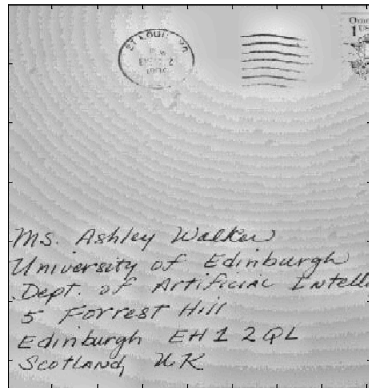 ST LOUIS
1
Ms. Ashley Walker
University of Edinburgh
Dept. of Artificial Intelli
5 Forrest Hill
Edinburgh EH1 2QL
Scotland, UK